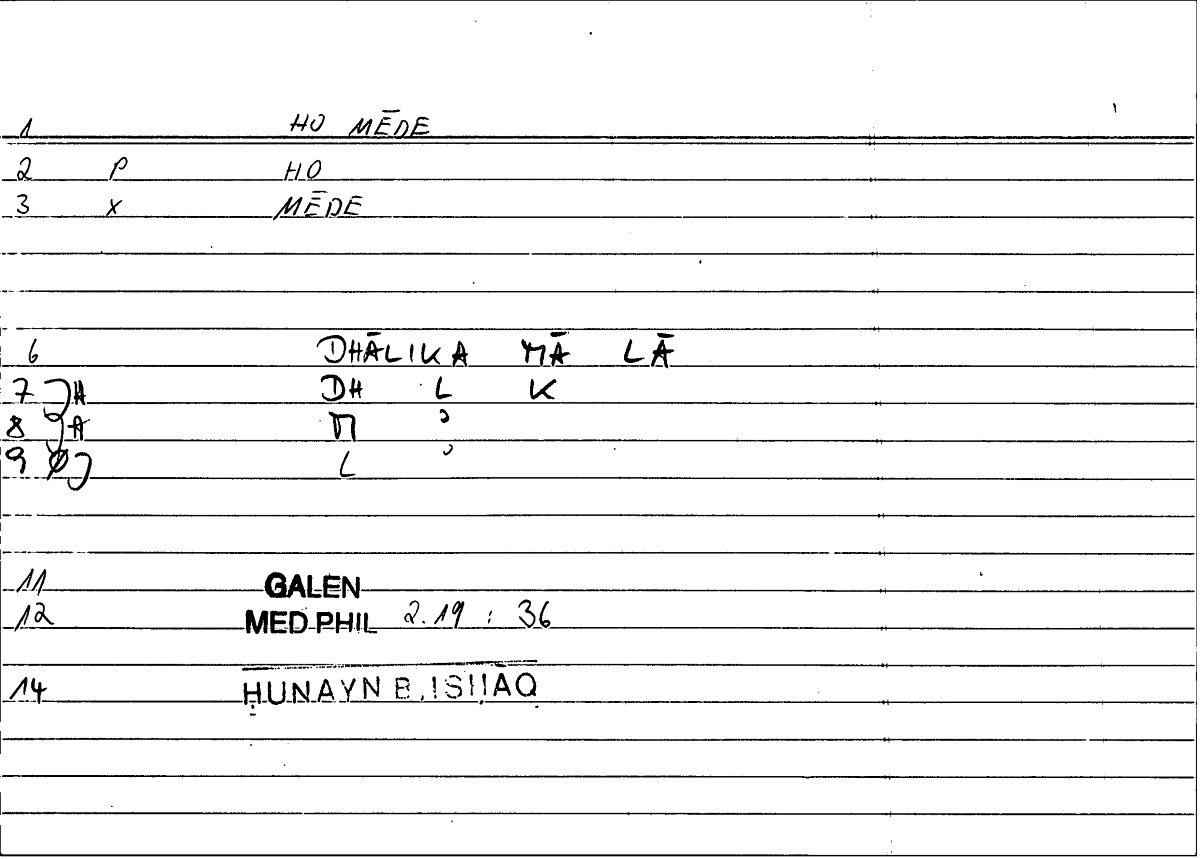 1 HO MĒDE
2 P HO
3 X MĒDE
6 DHĀLIKA MĀ LĀ
7 H DH L K
8 A M ʾ
9 L ʾ
11 GALEN
12 MED PHIL 2.19 : 36
14 ḤUNAYN B. ISḤĀQ